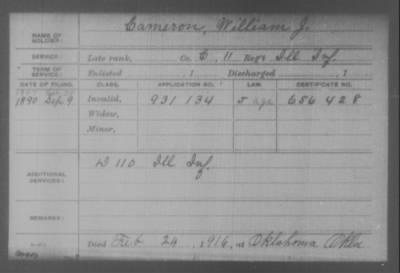 Cameron, William J.
NAME OF SOLDIER:
SERVICE: Late rank, Co. G, 11 Reg't Ill Inf.
TERM OF SERVICE: Enlisted , 1 Discharged , 1
DATE OF FILING. CLASS. APPLICATION NO. LAW. CERTIFICATE NO.
1890 Sep. 9 Invalid, 931 134 J age 656 428
Widow,
Minor,
D 110 Ill Inf.
ADDITIONAL SERVICES:
REMARKS:
Died Feb 24 1916, at Oklahoma Okla